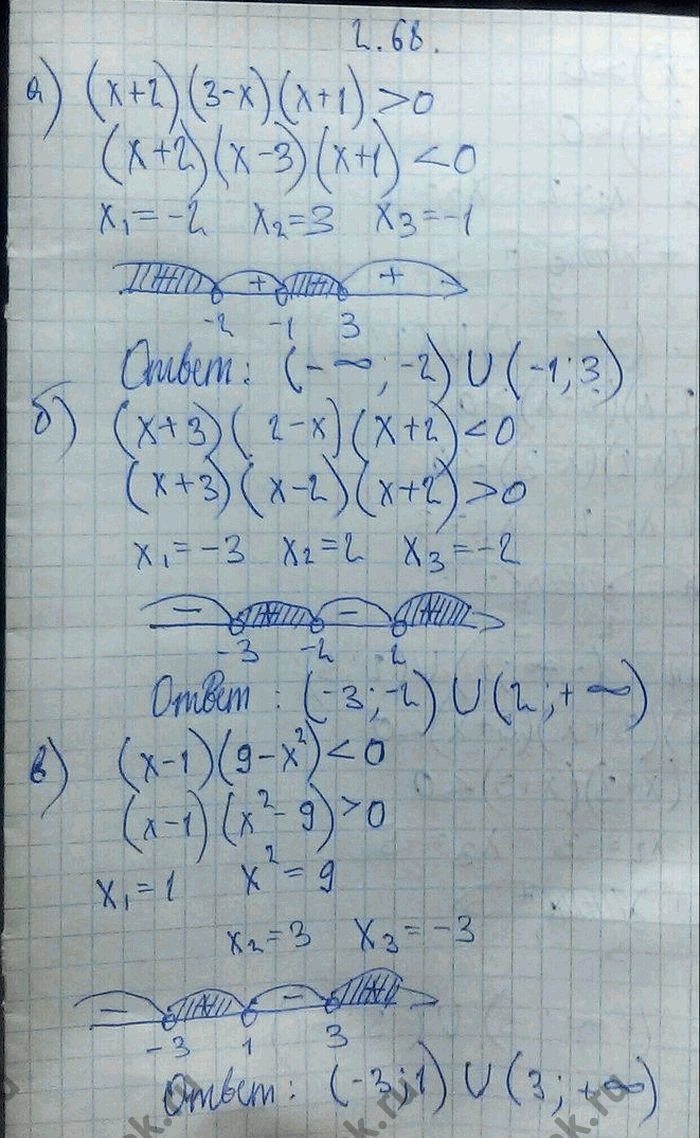 2.68.
а) (x+2)(3-x)(x+1)>0
(x+2)(x-3)(x+1)<0
x₁=-2 x₂=3 x₃=-1
+ +
-2 -1 3
Ответ: (-∞;-2)∪(-1;3)
б) (x+3)(2-x)(x+2)<0
(x+3)(x-2)(x+2)>0
x₁=-3 x₂=2 x₃=-2
- -
-3 -2 2
Ответ: (-3;-2)∪(2;+∞)
в) (x-1)(9-x²)<0
(x-1)(x²-9)>0
x₁=1 x²=9
x₂=3 x₃=-3
- -
-3 1 3
Ответ: (-3;1)∪(3;+∞)